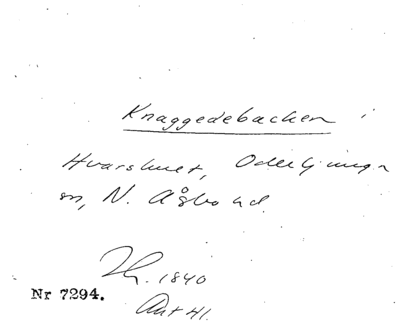 Knaggedebacken i
Hvarshult, Oderljunga
sn, N. Åsbo hd.
1840
Nr 7294.
Ant 41.